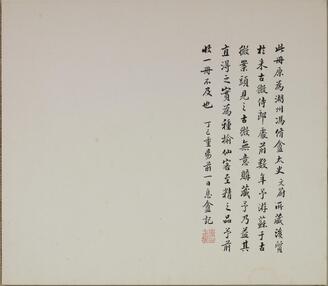 此冊原為湖州馮脩盦太史文蔚所藏後質
於朱古微侍郎處前數年予游蘇于古
微案頭見之古微無意購藏予乃益其
直得之實為種榆仙客至精之品予前
收一冊不及也 丁巳重易前一日息盦記